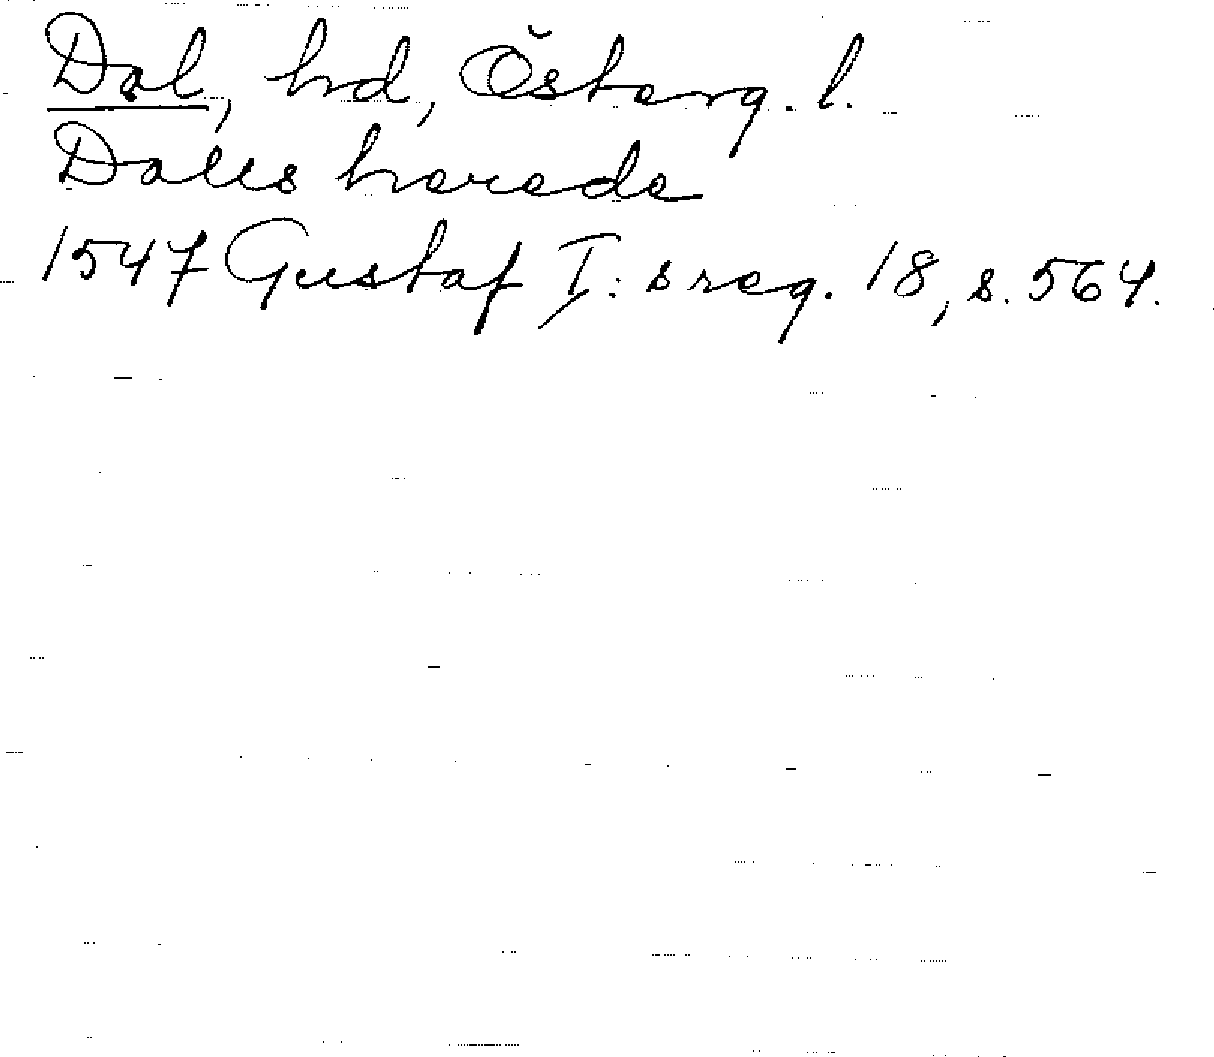 Dal, hd, Österg. l.
Dalls harede
1547 Gustaf I: s reg. 18, s. 564.